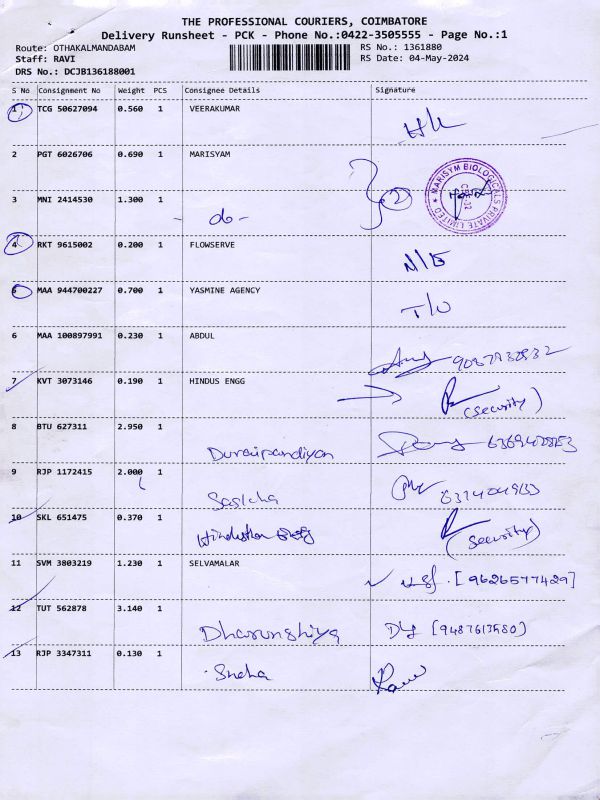 THE PROFESSIONAL COURIERS, COIMBATORE
Delivery Runsheet - PCK - Phone No.:0422-3505555 - Page No.:1
Route: OTHAKALMANDABAM
RS No.: 1361880
Staff: RAVI
RS Date: 04-May-2024
DRS No.: DCJB136188001
S No Consignment No Weight PCS Consignee Details Signature
1 TCG 50627094 0.560 1 VEERAKUMAR
2 PGT 6026706 0.690 1 MARISYAM
MARISYM BIOLOGICALS PRIVATE LIMITED
3 MNI 2414530 1.300 1 - do - 2
4 RKT 9615002 0.200 1 FLOWSERVE N/S
5 MAA 944700227 0.700 1 YASMINE AGENCY T/U
6 MAA 100897991 0.230 1 ABDUL
7 KVT 3073146 0.190 1 HINDUS ENGG (Security)
8 BTU 627311 2.950 1 Duraipandiyan
9 RJP 1172415 2.000 1
10 SKL 651475 0.370 1 (Security)
11 SVM 3803219 1.230 1 SELVAMALAR [9626577429]
12 TUT 562878 3.140 1 Dharunshiya [9487613580]
13 RJP 3347311 0.130 1 Sneha